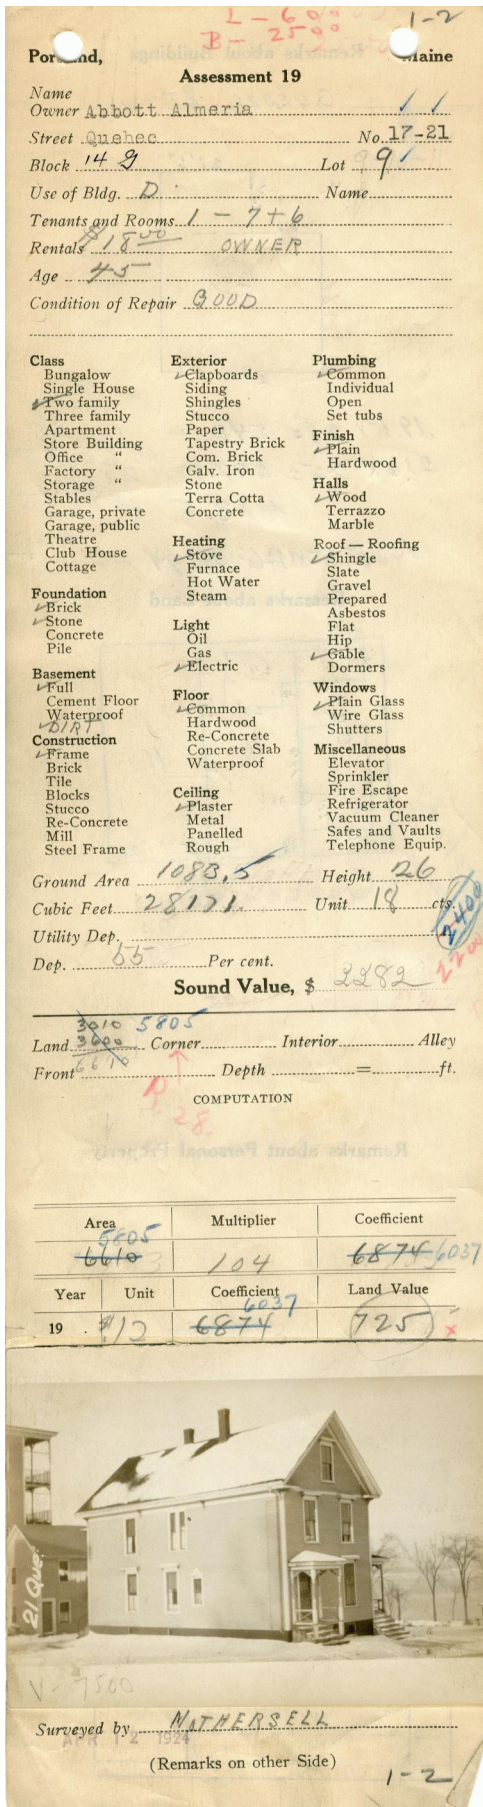 L - 600
B - 2500
1-2
Portland, Maine
Assessment 19
Name
Owner Abbott Almeria 1 1
Street Quebec No. 17-21
Block 14 G Lot 9
Use of Bldg. D. Name
Tenants and Rooms 1 - 7 + 6
Rentals $18.00 OWNER
Age 45
Condition of Repair GOOD
Class
Bungalow
Single House
✓Two family
Three family
Apartment
Store Building
Office “
Factory “
Storage “
Stables
Garage, private
Garage, public
Theatre
Club House
Cottage
Foundation
✓Brick
✓Stone
Concrete
Pile
Basement
✓Full
Cement Floor
Waterproof
✓DIRT
Construction
✓Frame
Brick
Tile
Blocks
Stucco
Re-Concrete
Mill
Steel Frame
Exterior
✓Clapboards
Siding
Shingles
Stucco
Paper
Tapestry Brick
Com. Brick
Galv. Iron
Stone
Terra Cotta
Concrete
Heating
✓Stove
Furnace
Hot Water
Steam
Light
Oil
Gas
✓Electric
Floor
✓Common
Hardwood
Re-Concrete
Concrete Slab
Waterproof
Ceiling
✓Plaster
Metal
Panelled
Rough
Plumbing
✓Common
Individual
Open
Set tubs
Finish
✓Plain
Hardwood
Halls
✓Wood
Terrazzo
Marble
Roof — Roofing
✓Shingle
Slate
Gravel
Prepared
Asbestos
Flat
Hip
✓Gable
Dormers
Windows
✓Plain Glass
Wire Glass
Shutters
Miscellaneous
Elevator
Sprinkler
Fire Escape
Refrigerator
Vacuum Cleaner
Safes and Vaults
Telephone Equip.
Ground Area 1083.5 Height 26
Cubic Feet 28171 Unit 18 cts.
2400
Utility Dep.
2200
Dep. 55 Per cent.
Sound Value, $ 2282
3010 5805
Land 3600 Corner Interior Alley
Front 6610 Depth = ft.
28.
COMPUTATION
Area Multiplier Coefficient
5805
6610 104 6874 6037
Year Unit Coefficient Land Value
6037
19 . $12 6874 725
21 Que.
V - 7500
Surveyed by NOTHERSELL
APR 12 1924
(Remarks on other Side)
1-2